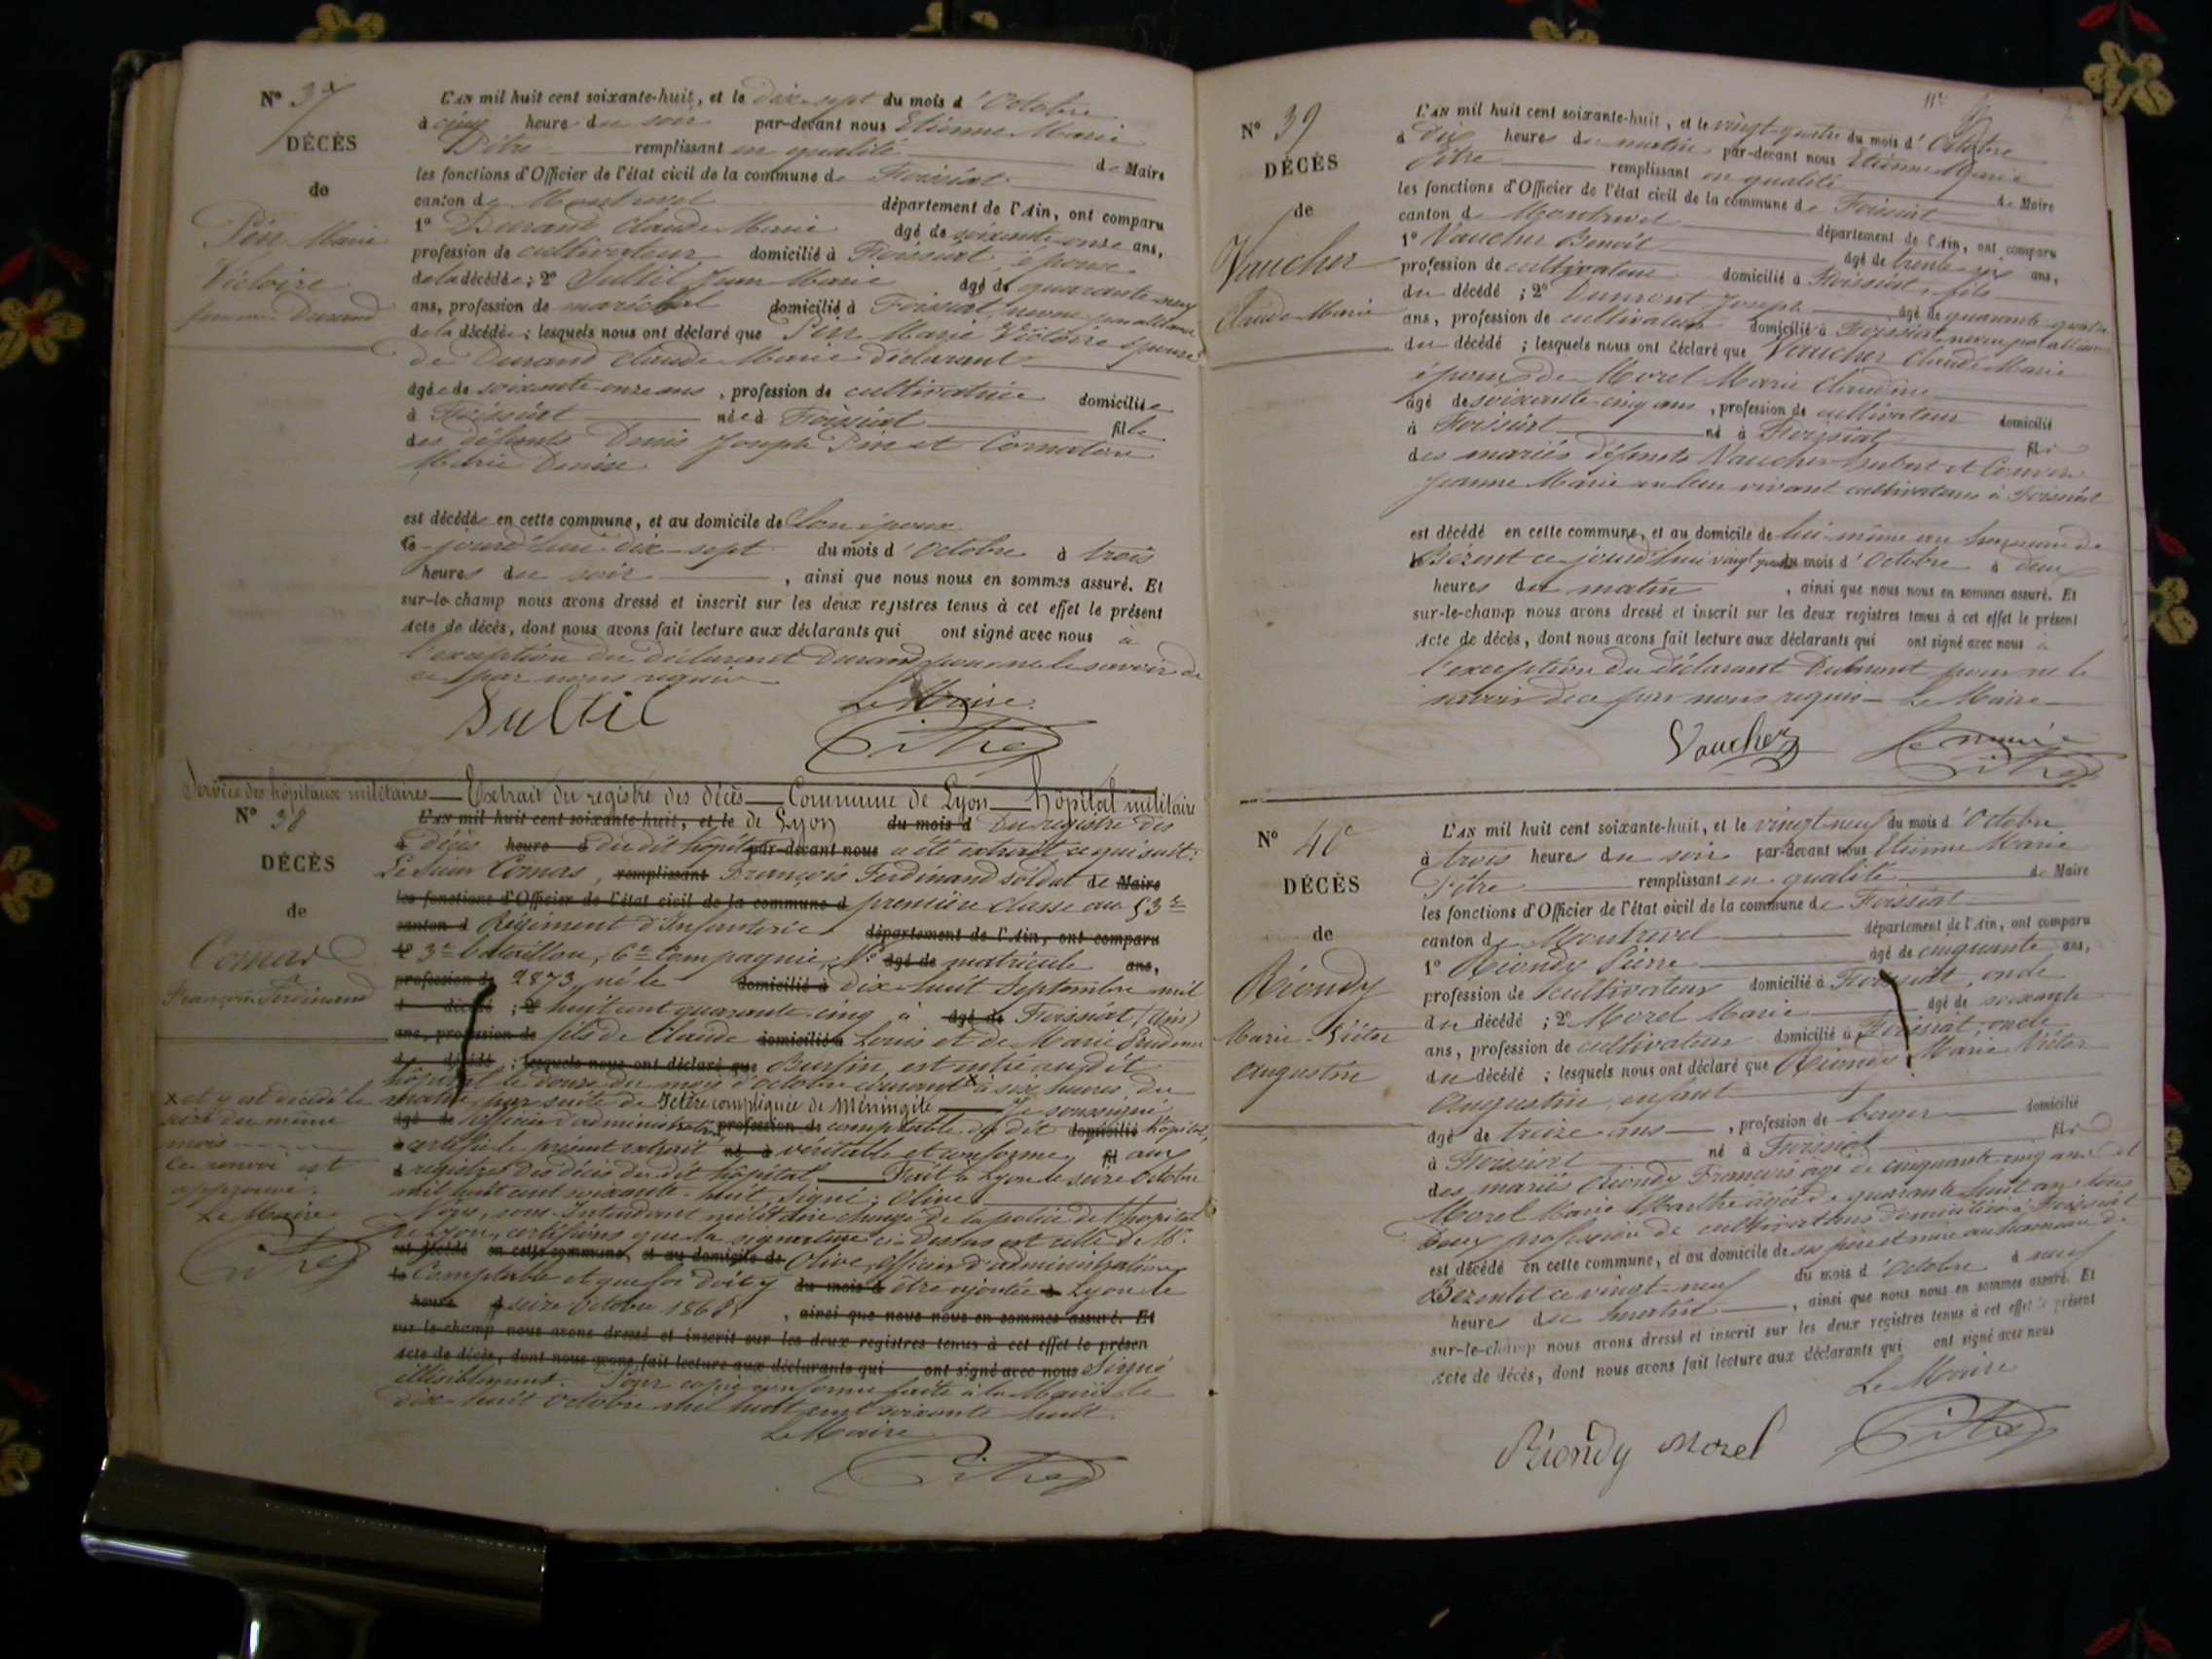 N° 37
DÉCÈS
de
Pin Marie
Victoire
femme Durand
L'AN mil huit cent soixante-huit, et le dix-sept du mois d'Octobre
à cinq heure du soir par-devant nous Etienne Marie
Pitre remplissant en qualité de Maire
les fonctions d'Officier de l'état civil de la commune de Foissiat
canton de Montrevel département de l'Ain, ont comparu
1° Durand Claude Marie âgé de soixante onze ans,
profession de cultivateur domicilié à Foissiat, époux
de la décédée ; 2° Sultil Jean Marie âgé de quarante neuf
ans, profession de maréchal domicilié à Foissiat, neveu par alliance
de la décédée ; lesquels nous ont déclaré que Pin Marie Victoire épouse
de Durand Claude Marie déclarant
âgée de soixante-onze ans, profession de cultivatrice domiciliée
à Foissiat née à Foissiat fille
des défunts Denis Joseph Pin et Cornaton
Marie Denise
est décédée en cette commune, et au domicile de son époux
ce jourd'hui dix-sept du mois d'Octobre à trois
heures du soir, ainsi que nous nous en sommes assuré. Et
sur-le-champ nous avons dressé et inscrit sur les deux registres tenus à cet effet le présent
acte de décès, dont nous avons fait lecture aux déclarants qui ont signé avec nous à
l'exception du déclarant Durand pour ne le savoir de
ce par nous requis
Le Maire
Sultil Pitre
Service des hôpitaux militaires — Extrait du registre des décès — Commune de Lyon — hôpital militaire
N° 38
DÉCÈS
de
Comas
François Ferdinand
L'AN mil huit cent soixante-huit, et le de Lyon du mois d Du registre des
à décès heure d dudit hôpital par-devant nous a été extrait ce qui suit:
Le sieur Comas, remplissant François Ferdinand soldat de Maire
les fonctions d'Officier de l'état civil de la commune d première classe au 53e
canton d Régiment d'Infanterie département de l'Ain, ont comparu
1° 3e bataillon, 6e compagnie, N° âgé de matricule ans,
profession de 2873 né le domicilié à dix huit Septembre mil
d décédé ; 2° huit cent quarante cinq à âgé de Foissiat (Ain)
ans, profession de fils de Claude domicilié à Louis et de Marie
d décédé ; lesquels nous ont déclaré que est entré audit
hôpital le douze du mois d'octobre courant x à six heures du
matin, par suite de Ictère compliquée de Méningite Je soussigné
âgé de officier d'administration profession de comptable dudit domicilié hôpital,
certifie le présent extrait né à véritable et conforme fil aux
à registres des décès dudit hôpital Fait à Lyon le seize Octobre
mil huit cent soixante-huit, signé: Olive
Nous, sous-Intendant militaire chargé de la police de l'hôpital
de Lyon, certifions que la signature ci-dessus est celle de Mr
est décédé en cette commune, et au domicile de Olive, officier d'administration
le Comptable et que foi doit y du mois d être ajoutée à Lyon le
heure seize Octobre 1868, ainsi que nous nous en sommes assuré. Et
sur-le-champ nous avons dressé et inscrit sur les deux registres tenus à cet effet le présen
acte de décès, dont nous avons fait lecture aux déclarants qui ont signé avec nous Signé
illisiblement. Pour copie conforme faite à la Mairie le
dix huit Octobre mil huit cent soixante huit.
Le Maire
Pitre
x et y est décédé le
seize du même
mois
Ce renvoi est
approuvé.
Le Maire
Pitre
N° 39
DÉCÈS
de
Vaucher
Claude Marie
L'AN mil huit cent soixante-huit, et le vingt-quatre du mois d'Octobre
à Dix heures du matin par-devant nous Etienne Marie
Pitre remplissant en qualité de Maire
les fonctions d'Officier de l'état civil de la commune de Foissiat
canton de Montrevel département de l'Ain, ont comparu
1° Vaucher Benoit âgé de trente six ans,
profession de cultivateur domicilié à Foissiat, fils
du décédé ; 2° Dumont Joseph âgé de quarante-quatre
ans, profession de cultivateur domicilié à Foissiat neveu par alliance
du décédé ; lesquels nous ont déclaré que Vaucher Claude Marie
époux de Morel Marie Claudine
âgé de soixante cinq ans, profession de cultivateur domicilié
à Foissiat né à Foissiat fils
des mariés défunts Vaucher hubert et
Jeanne Marie en leur vivant cultivateurs à Foissiat
est décédé en cette commune, et au domicile de lui-même au hameau de
Bézent ce jourd'hui vingt quatre du mois d'Octobre à deux
heures du matin, ainsi que nous nous en sommes assuré. Et
sur-le-champ nous avons dressé et inscrit sur les deux registres tenus à cet effet le présent
acte de décès, dont nous avons fait lecture aux déclarants qui ont signé avec nous à
l'exception du déclarant Dumont pour ne le
savoir de ce par nous requis — Le Maire
Vaucher Le maire
Pitre
N° 40
DÉCÈS
de
Riondy
Marie Victor
Augustin
L'AN mil huit cent soixante-huit, et le vingt neuf du mois d'Octobre
à trois heures du soir par-devant nous Etienne Marie
Pitre remplissant en qualité de Maire
les fonctions d'Officier de l'état civil de la commune de Foissiat
canton de Montrevel département de l'Ain, ont comparu
1° Riondy Pierre âgé de cinquante ans,
profession de cultivateur domicilié à Foissiat, oncle
du décédé ; 2° Morel Marie âgé de soixante
ans, profession de cultivateur domicilié à Foissiat, oncle
du décédé ; lesquels nous ont déclaré que Riondy Marie Victor
Augustin, enfant
âgé de treize ans, profession de berger domicilié
à Foissiat né à Foissiat fils
des mariés Riondy François âgé de cinquante cinq ans et
Morel Marie Marthe âgée de quarante huit ans tous
Deux profession de cultivateurs domiciliés à Foissiat
est décédé en cette commune, et au domicile de ses père et mère au hameau de
Bezentet ce vingt-neuf du mois d'Octobre à neuf
heures du matin, ainsi que nous nous en sommes assuré. Et
sur-le-champ nous avons dressé et inscrit sur les deux registres tenus à cet effet le présent
acte de décès, dont nous avons fait lecture aux déclarants qui ont signé avec nous
Le Maire
Riondy Morel Pitre